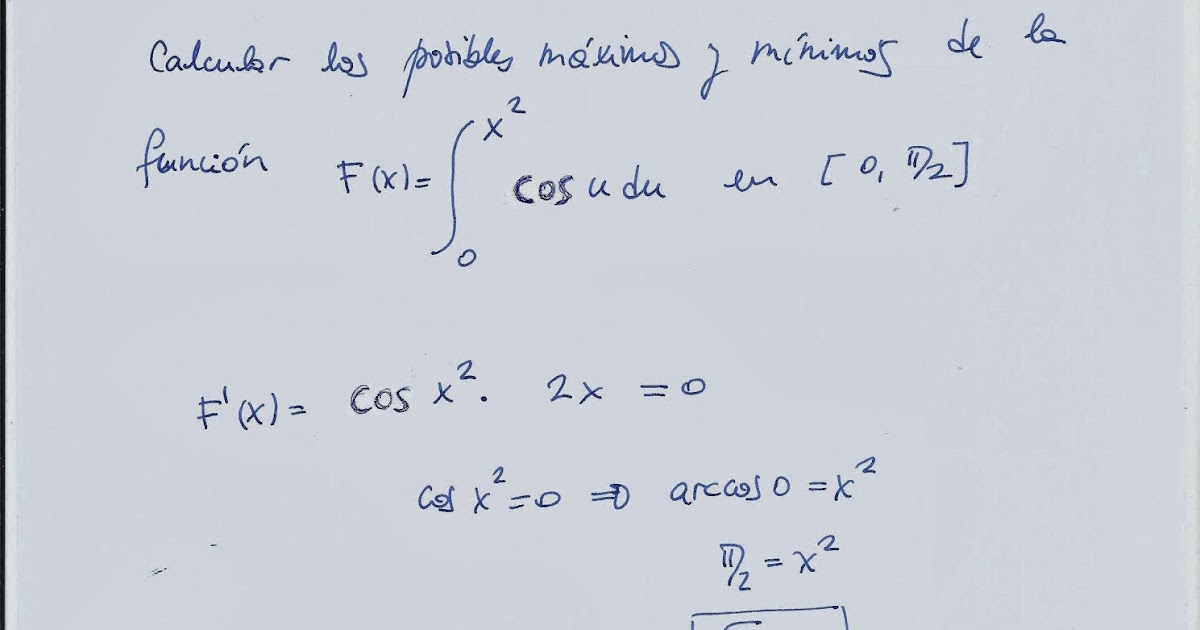 Calcular los posibles máximos y mínimos de la
función F(x)= ∫₀^x² cos u du en [0, π/2]
F'(x) = cos x². 2x = 0
cos x² = 0 ⇒ arccos 0 = x²
π/2 = x²